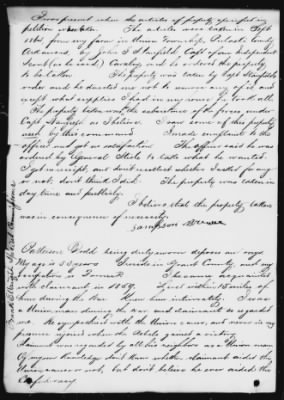 I was present when the articles of property specified in my
petition was taken. The articles were taken in Sept
1863 from my farm in Union Township, Pulaski County
Arkansas, by John S. Stanfield Capt of an Independent
Scout (as he said) Cavalry and he ordered the property
to be taken. The property was taken by Capt Stanfields
order and he directed me not to
what supplies I had in my house he took all.
The property taken was the subsistence of the force under
Capt Stanfield as I believe. I saw some of this property
used by his command. I made complaint to the
officer and got no satisfaction. The officer said he was
ordered by General Steele to take what he wanted.
I got no receipt and dont recollect whether I asked for any
or not, dont think I did. The property was taken in
day time and publicly.
I believe that the property taken
was in consequence of necessity.
Patterson Dodd being duly sworn deposes and says
My age is 53 years I reside in Grant County, and my
occupation is Farmer. I became acquainted
with claimant in 1859. I lived within 15 miles of
him during the War. Knew him intimately. I was
a Union man during the war and claimant so regarded
me. He sympathised with the Union cause, but never in my
presence
Claimant was regarded by all his neighbors as a Union man
Of my own knowledge I dont know whether claimant aided the
Union cause or not, but dont believe he ever aided the
Confederacy